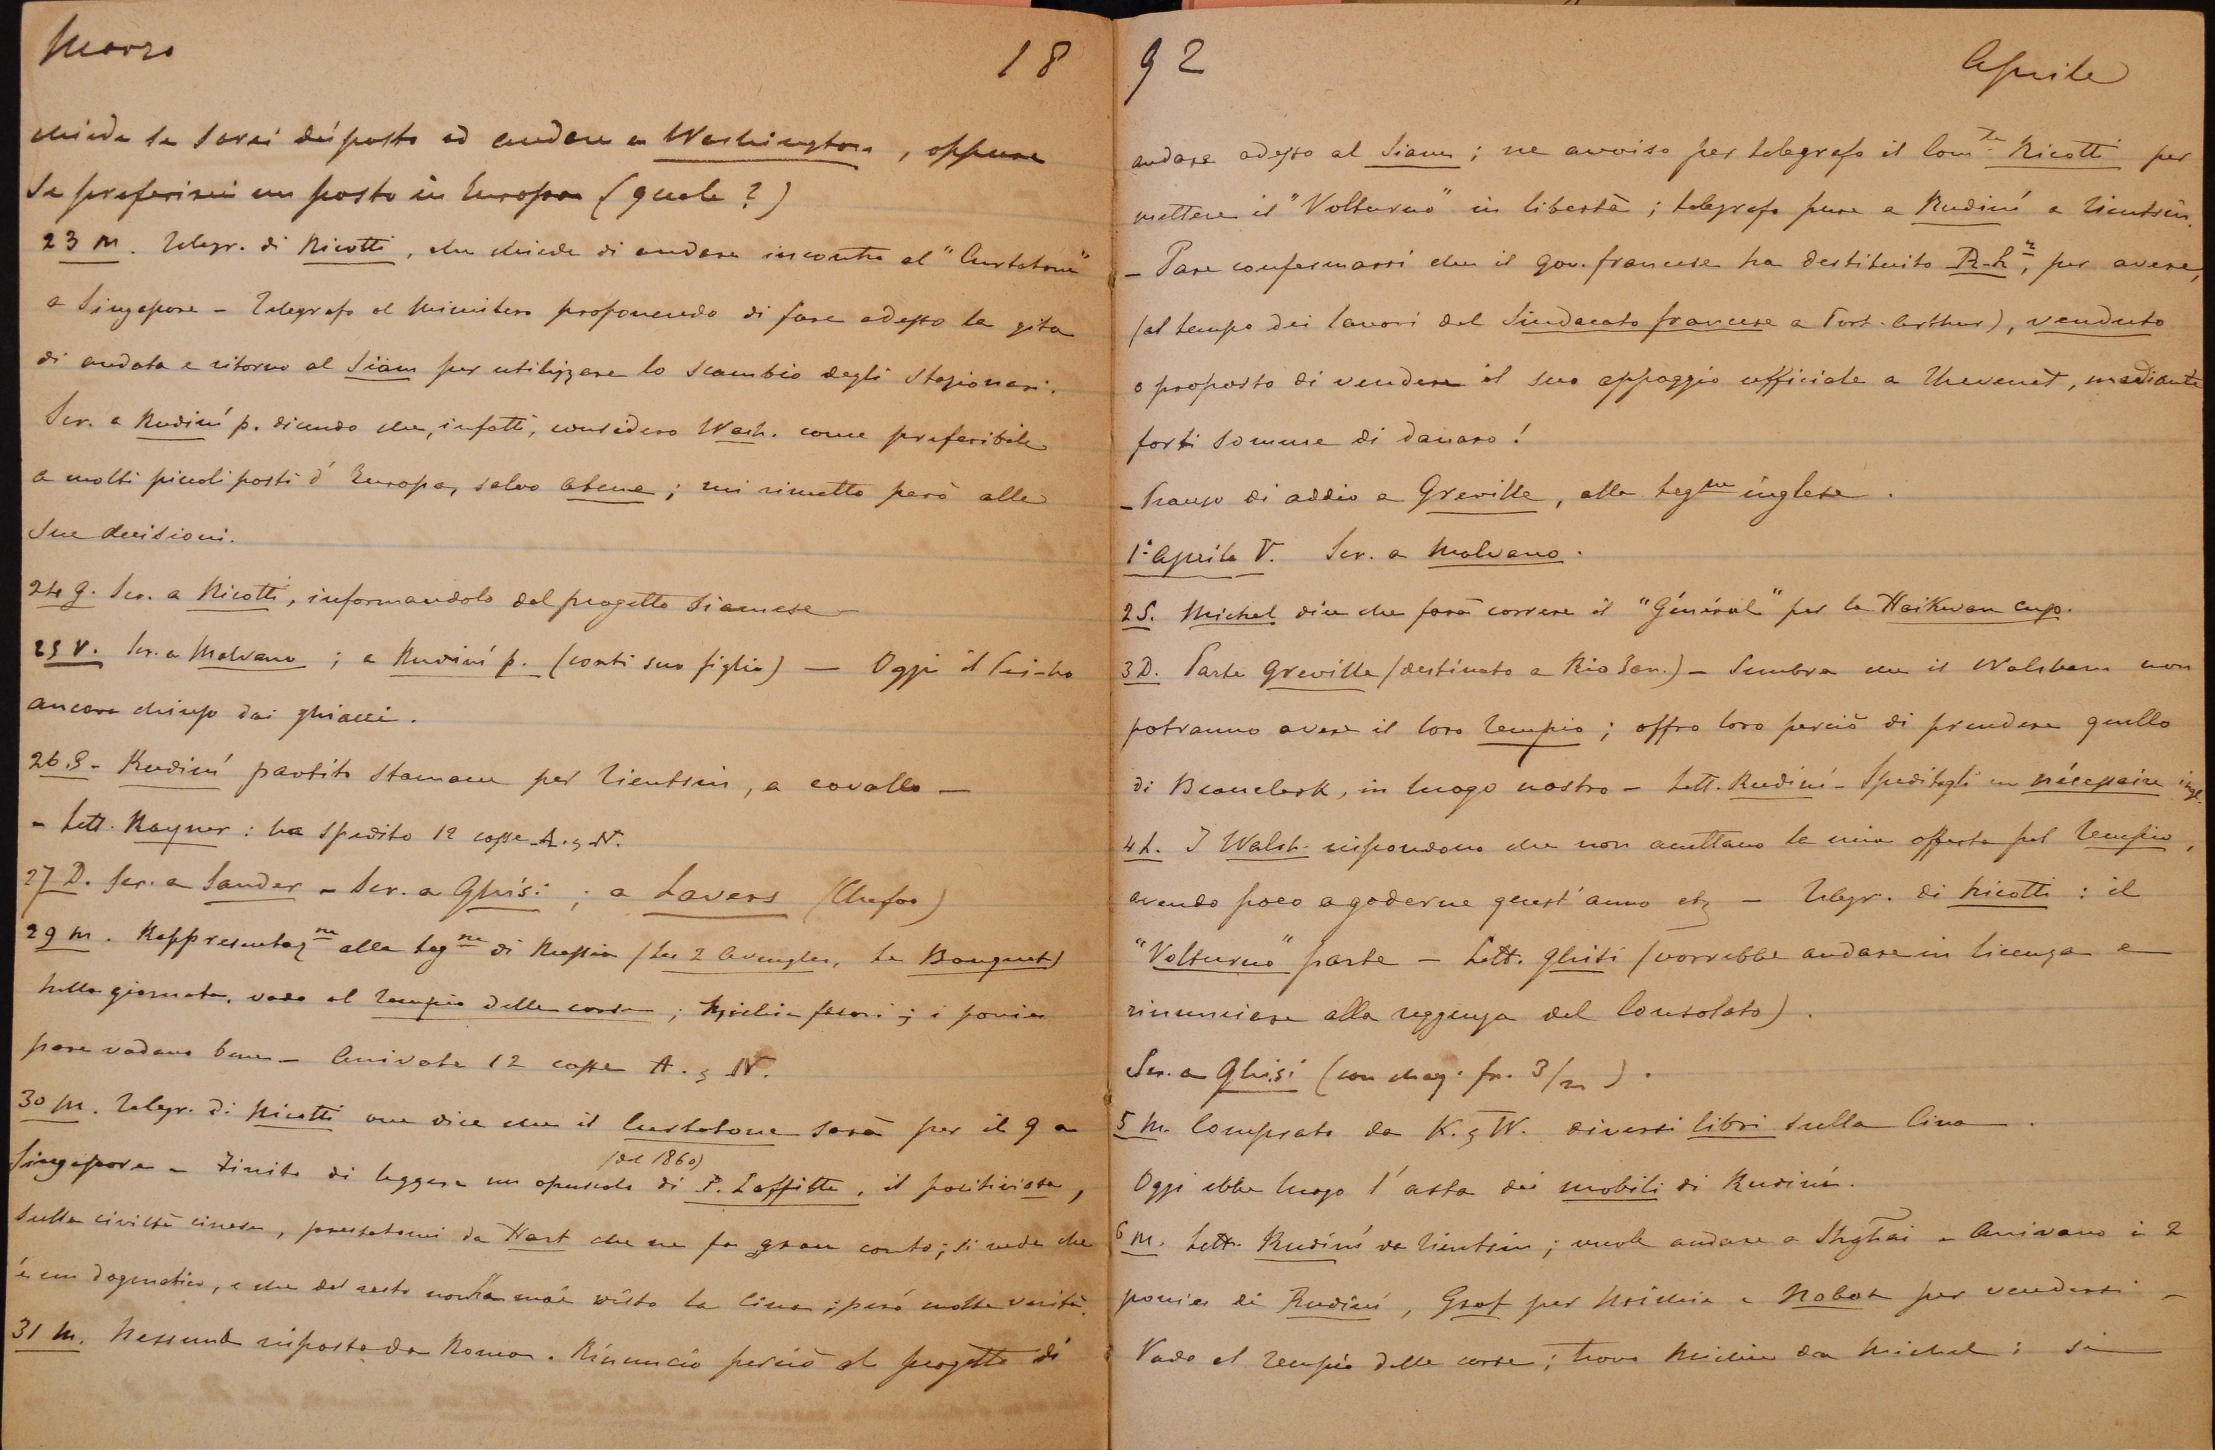 Marzo 18
chiede se sarei disposto ad andare a Washington, oppure
se preferirei un posto in Europa (quale?)
23 M. Telegr. di Ricotti, che chiede di andare incontro al "Curtatone"
a Singapore - Telegrafo al Ministero proponendo di fare adesso la gita
di andata e ritorno al Siam per utilizzare lo scambio degli stazionari.
Scr. a Rudiní p. dicendo che, infatti, considero Wash. come preferibile
a molti piccoli posti d'Europa, salvo Atene; mi rimetto però alle
sue decisioni.
24 G. Scr. a Ricotti, informandolo del progetto siamese -
25 V. Scr. a Malvano; a Rudiní p. (conti suo figlio) - Oggi il Pei-ho
ancora chiuso dai ghiacci.
26 S. - Rudiní partito stamane per Tientsin, a cavallo -
- Lett. Rayner: ha spedito 12 casse A. & N.
27 D. Scr. a Sander - Scr. a Ghisi; a Lavers (Chefoo)
29 M. Rappresentaz.ne alla Leg.ne di Russia (Les 2 Aveugles, Le Bouquet)
Nella giornata, vado al Tempio delle corse; fuori; i ponies
pare vadano bene - Arrivate 12 casse A. & N.
30 M. Telegr. di Ricotti che dice che il Curtatone sarà per il 9 a
Singapore - Finito di leggere un opuscolo (del 1860) di P. Laffitte, il positivista,
sulla civiltà cinese, prestatomi da Hart che ne fa gran conto; si vede che
è un dogmatico, e che del resto non ha mai visto la Cina; però molte verità.
31 M. Nessuna risposta da Roma. Rinuncio perciò al progetto di
92 Aprile
andare adesso al Siam; ne avviso per telegrafo il Com.te Ricotti per
mettere il "Volturno" in libertà; telegrafo pure a Rudiní a Tientsin.
- Pare confermarsi che il gov. francese ha destituito R-h, per avere,
(al tempo dei lavori del Sindacato francese a Port-Arthur), venduto
o proposto di vendere il suo appoggio ufficiale a Thevenet, mediante
forti somme di danaro!
- Pranzo di addio a Greville, alla Leg.ne inglese.
1° Aprile V. Scr. a Malvano.
2 S. Michel dice che farà correre il "Général" per la Haikwan cup.
3 D. Parte Greville (destinato a Rio Jan.) - Sembra che i Walsham non
potranno avere il loro tempio; offro loro perciò di prendere quello
di Beauclerk, in luogo nostro - Lett. Rudiní - Speditogli un nécessaire ingl.
4 L. I Walsh. rispondono che non accettano la mia offerta pel Tempio,
avendo poco a goderne quest'anno etc - Telegr. di Ricotti: il
"Volturno" parte - Lett. Ghisi (vorrebbe andare in licenza e
rinunciare alla reggenza del Consolato).
Scr. a Ghisi (con chèq. fr. 3/m).
5 M. Comprato da K. & W. diversi libri sulla Cina.
Oggi ebbe luogo l'asta dei mobili di Rudiní.
6 M. Lett. Rudiní da Tientsin; vuole andare a Shghai - Arrivano i 2
ponies di Rudiní, Graf per e Nabob per vendersi -
Vado al Tempio delle corse; trovo da Michel; si